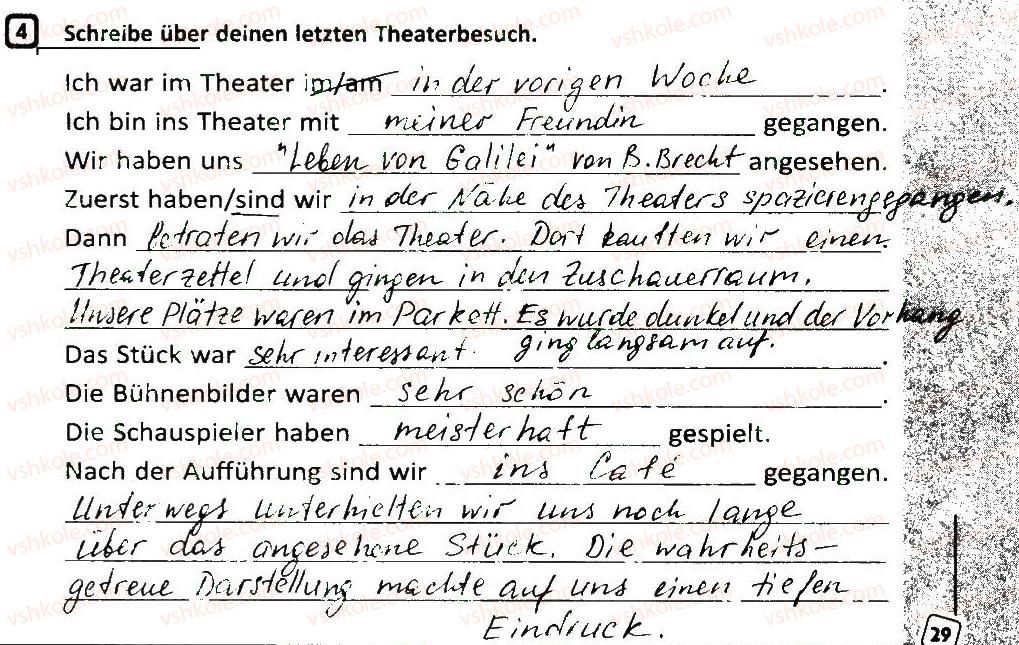 4 Schreibe über deinen letzten Theaterbesuch.
Ich war im Theater im/am in der vorigen Woche.
Ich bin ins Theater mit meiner Freundin gegangen.
Wir haben uns "Leben von Galilei" von B. Brecht angesehen.
Zuerst haben/sind wir in der Nähe des Theaters spazierengegangen.
Dann betraten wir das Theater. Dort kauften wir einen
Theaterzettel und gingen in den Zuschauerraum.
Unsere Plätze waren im Parkett. Es wurde dunkel und der Vorhang
ging langsam auf.
Das Stück war sehr interessant.
Die Bühnenbilder waren sehr schön.
Die Schauspieler haben meisterhaft gespielt.
Nach der Aufführung sind wir ins Café gegangen.
Unterwegs unterhielten wir uns noch lange
über das angesehene Stück. Die wahrheits-
getreue Darstellung machte auf uns einen tiefen
Eindruck.
29
vshkole.com